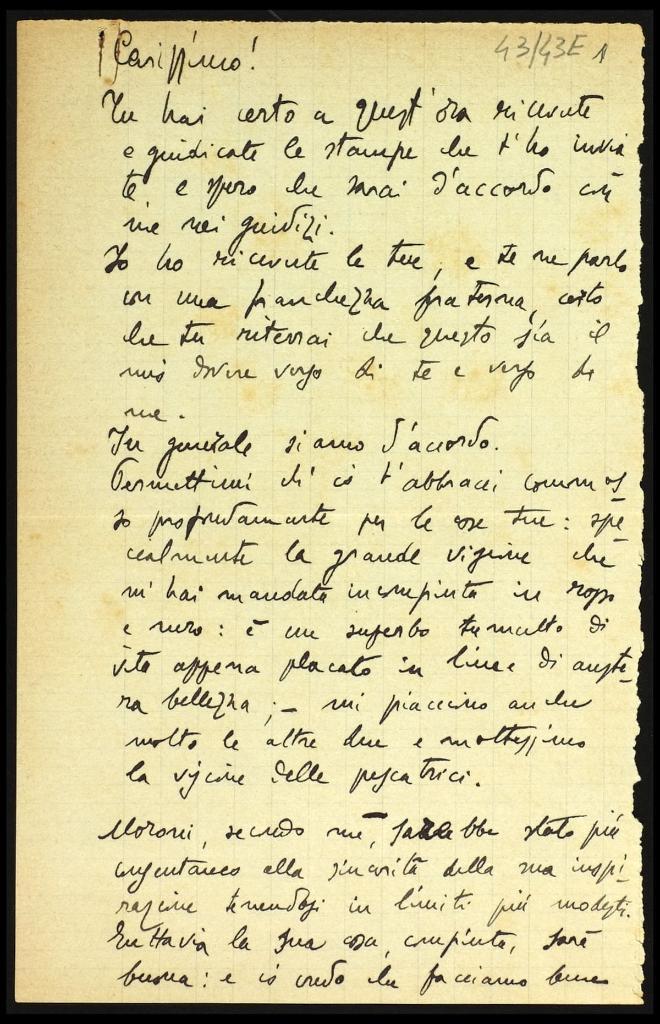 43/43E 1
Carissimo!
Tu hai certo a quest'ora ricevute
e giudicate le stampe che t'ho invia
te e spero che sarai d'accordo con
me nei giudizi.
Io ho ricevute le tue, e te ne parlo
con una franchezza fraterna, certo
che tu riterrai che questo sia il
mio dovere verso di te e verso di
me.
In generale siamo d'accordo.
Permettimi ch'io t'abbracci commos
so profondamente per le cose tue: spe
cialmente la grande visione che
m'hai mandata incompiuta in rosso
e nero: è un superbo tumulto di
vita appena placato in linee di auste-
ra bellezza; – mi piacciono anche
molto le altre due e moltissimo
la visione delle pescatrici.
Moroni, secondo me, sarebbe stato più
consentaneo alla sincerità della sua inspi-
razione tenendosi in limiti più modesti.
Tuttavia la sua cosa, compiuta, sarà
buona: e io credo che facciamo bene